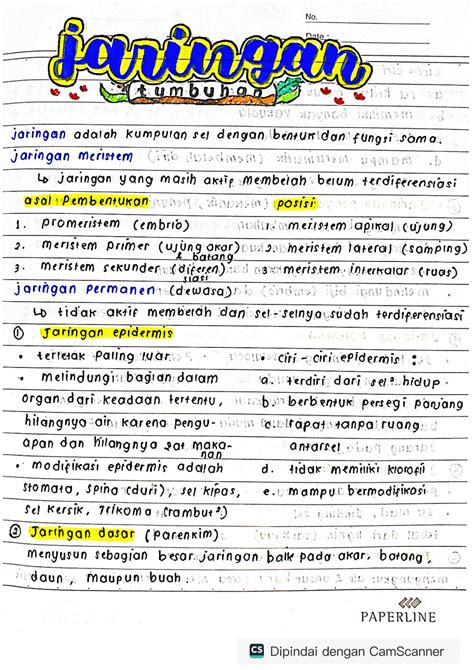 No.
Date:
jaringan
tumbuhan
jaringan adalah kumpulan sel dengan bentuk dan fungsi sama.
jaringan Meristem
↳ jaringan yang masih aktif membelah belum terdiferensiasi
asal Pembentukan posisi
1. promeristem (embrio) 1. meristem apikal (ujung)
2. meristem primer (ujung akar) 2. meristem lateral (samping)
& batang
3. meristem sekunder (diferen) 3. meristem interkalar (ruas)
siasi
jaringan permanen (dewasa)
↳ tidak aktif membelah dan sel-selnya sudah terdiferensiasi
① Jaringan epidermis
• terletak paling luar • ciri-ciri epidermis :
• melindungi bagian dalam a. terdiri dari sel² hidup
organ dari keadaan tertentu, b. berbentuk persegi panjang
hilangnya air karena pengu- c. rapat tanpa ruang
apan dan hilangnya zat maka- antarsel
nan
• modifikasi epidermis adalah d. tidak memiliki klorofil
stomata, spina (duri), sel kipas, e. mampu bermodifikasi
sel kersik, trikoma (rambut²)
② Jaringan dasar (parenkim)
menyusun sebagian besar jaringan baik pada akar, batang,
daun, maupun buah
PAPERLINE
CS Dipindai dengan CamScanner